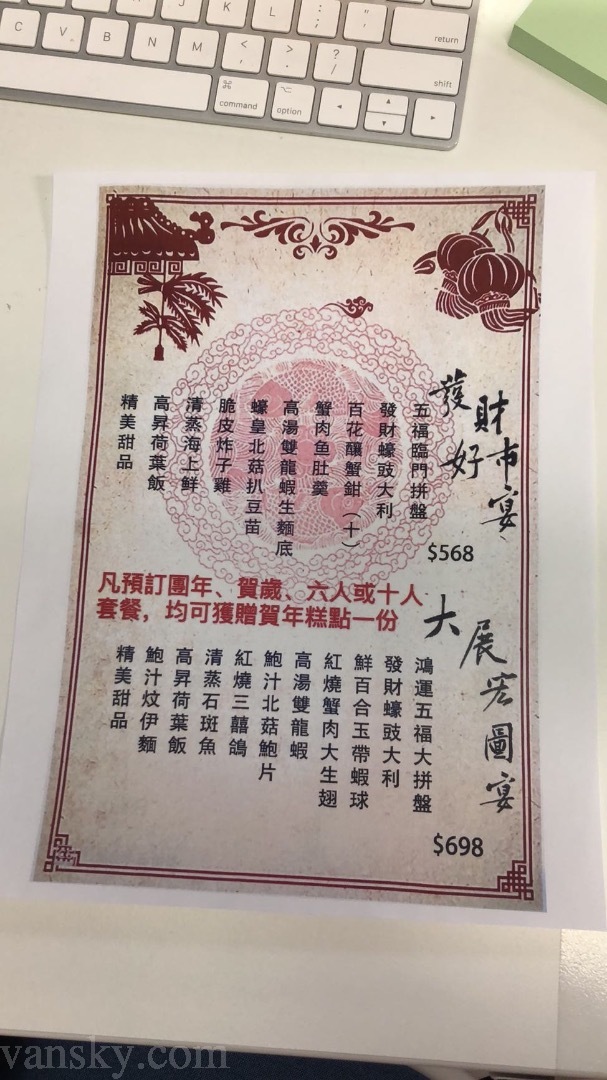 C
V
B
N
M
K
L
:
;
"
'
<
,
>
.
?
/
return
shift
⌘
command
⌥
option
發財好市宴
五福臨門拼盤
發財蠔豉大利
百花釀蟹鉗（十）
蟹肉鱼肚羹
高湯雙龍蝦生麵底
蠔皇北菇扒豆苗
脆皮炸子雞
清蒸海上鮮
高昇荷葉飯
精美甜品
$568
凡預訂團年、賀歲、六人或十人
套餐，均可獲贈賀年糕點一份
大展宏圖宴
鴻運五福大拼盤
發財蠔豉大利
鮮百合玉帶蝦球
紅燒蟹肉大生翅
高湯雙龍蝦
鮑汁北菇鮑片
紅燒三囍鴿
清蒸石斑魚
高昇荷葉飯
鮑汁炆伊麵
精美甜品
$698
vansky.com